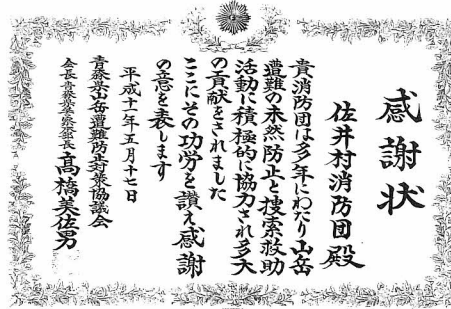 感謝状
佐井村消防団殿
貴消防団は多年にわたり山岳
遭難の未然防止と捜索救助
活動に積極的に協力され多大
の貢献をされました
ここにその功労を讃え感謝
の意を表します
平成十一年五月十七日
青森県山岳遭難防止対策協議会
会長青森県警察本部長 髙橋美佐男